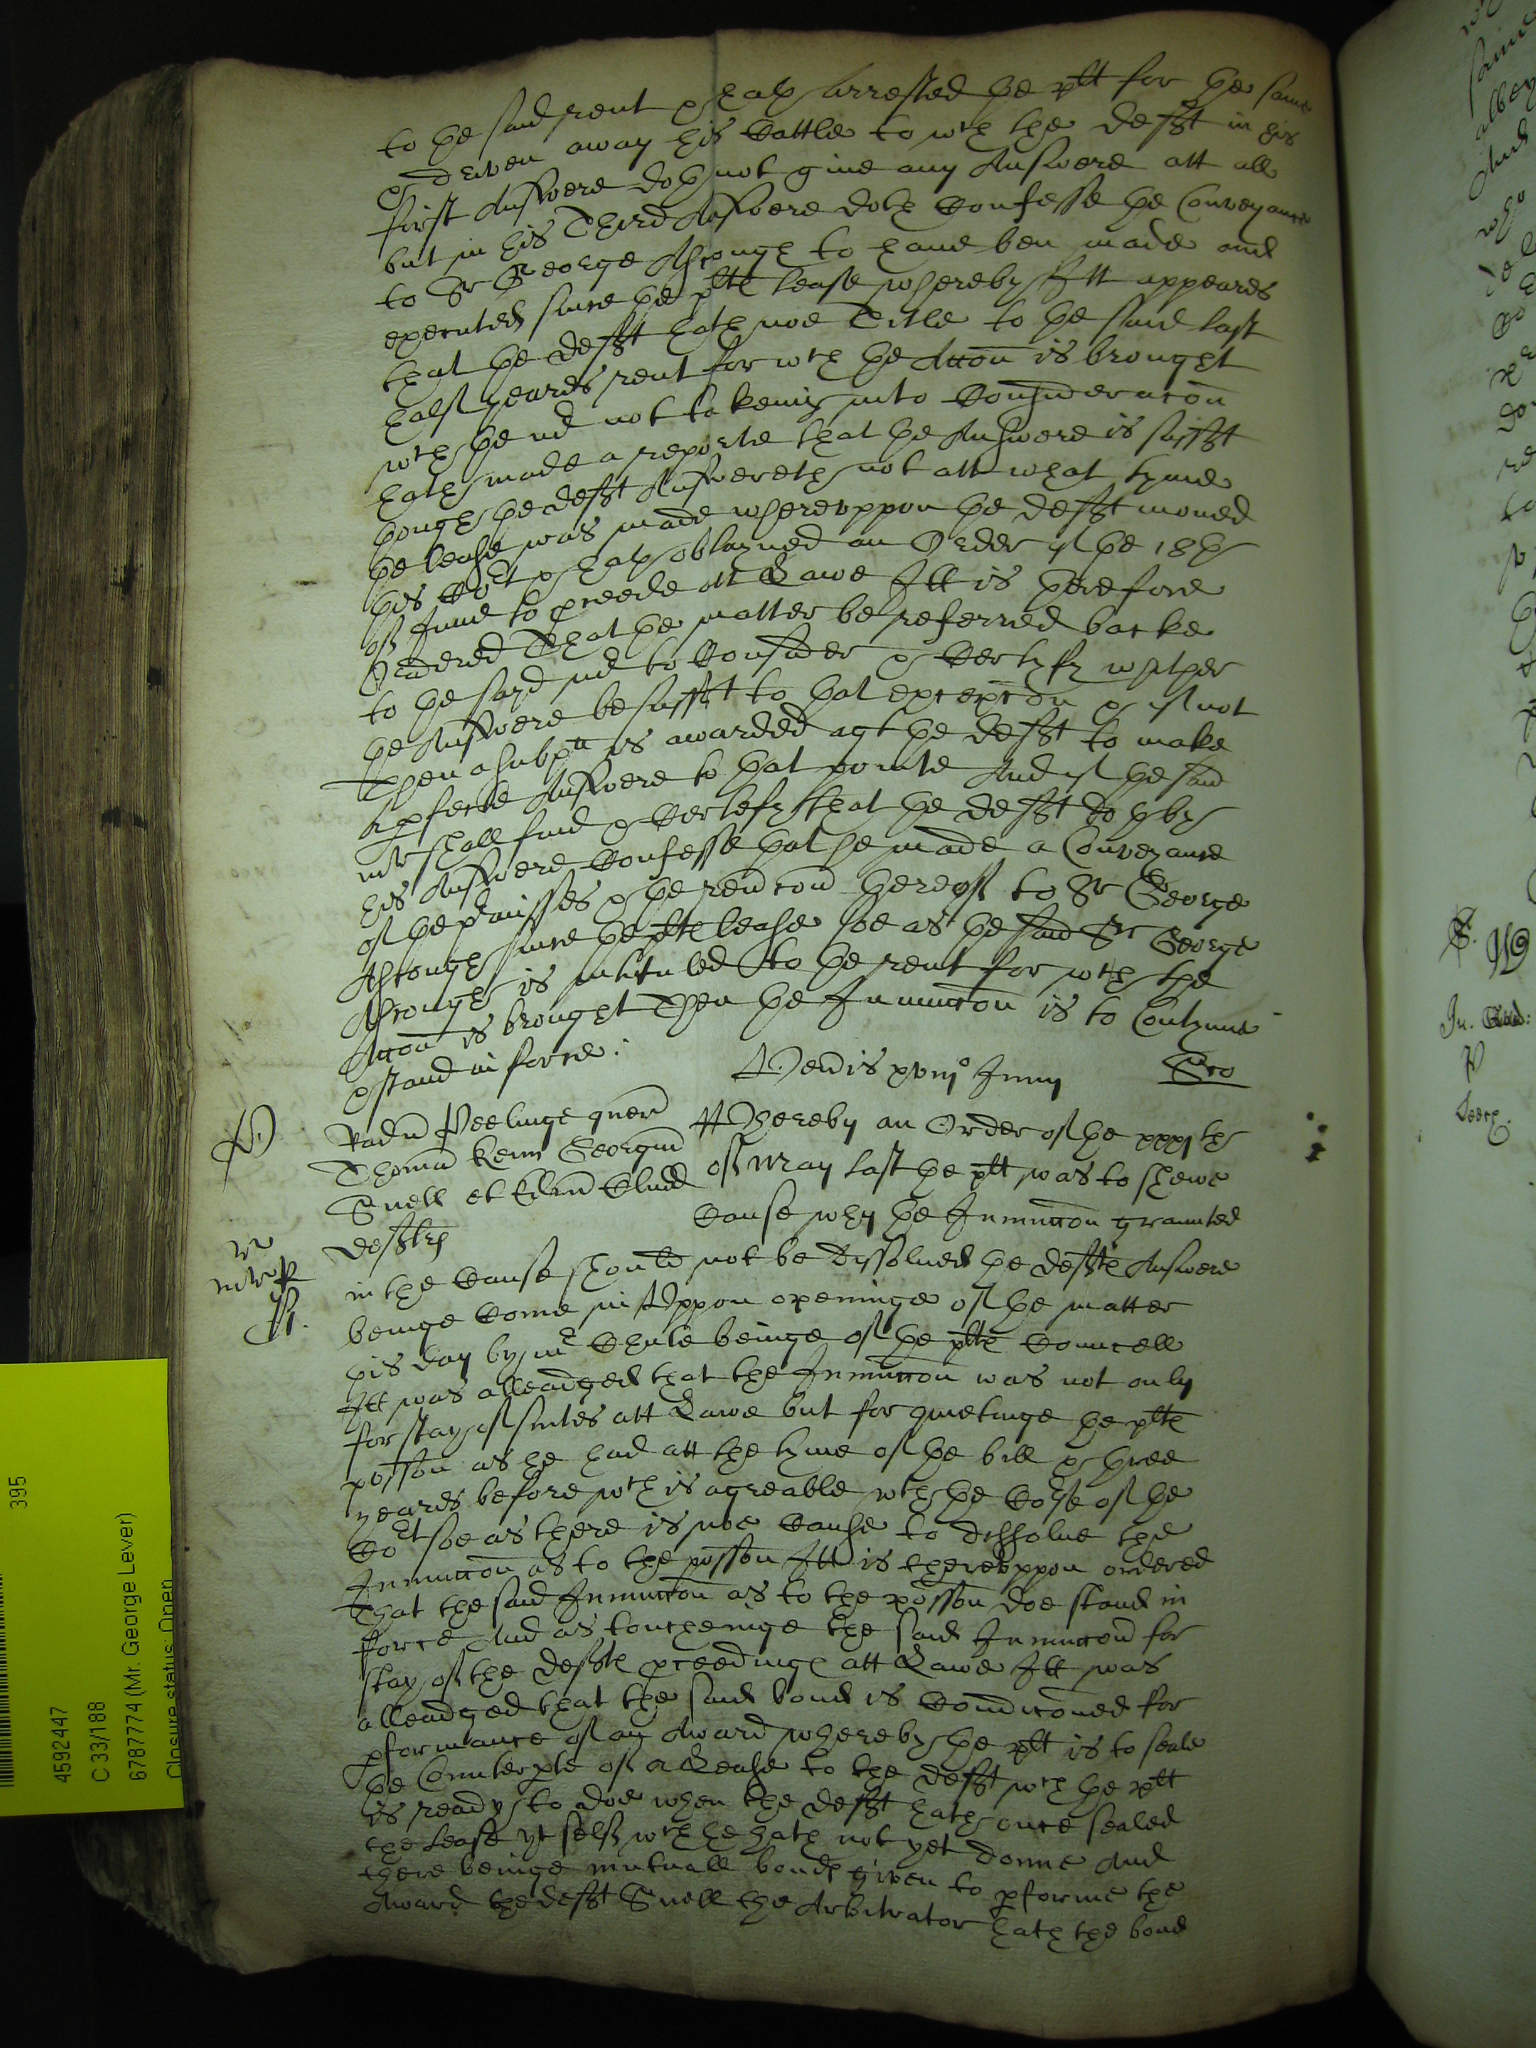 to the said rent & hath arrested the plt for the same
& driven away his Cattle to wch the defft in his
first Answere doth not give any Answere att all
but in his Third Answere doth Confesse the Conveyance
to Sr George Ascough to have ben made and
executed since the plts lease whereby Itt appeares
that the defft hath noe Title to the said last
halfe yeares rent for wch the Accon is brought
wch the mr not takeing into Consideracon
hath made a reporte that the Answere is sufft
though the defft Answereth not att what tyme
the lease was made whereuppon the defft moved
this Cort & hath obtayned an Order of the 18th
of June to pceede att Lawe Itt is therefore
Ordered That the matter be referred backe
to the sayd mr to Consider & Certyfy whether
the Answere be sufft to that excepcon & if not
Then a subpa is awarded agt the defft to make
a pfecte Answere to that pointe And if the said
mr shall find & Certefy that the defft doth by
his Answere Confesse that he made a Conveyance
of the pmisses & the revcon thereof to Sr George
Ascough since the plts lease soe as the said Sr George
Ascough is intituled to the rent for wch the
Accon is brought Then the Iniunccon is to Contynue
& stand in force:
Veneris xviijo Junij
Radus Peelinge quer
Thomas Kem Georgius
Snell et
deffts
Whereby an Order of the xxxjth
of May last the plt was to shewe
Cause why the Iniunccon graunted
in the Cause should not be dissolved the deffts Answere
beinge Come in Uppon openinge of the matter
this day by mr Chute beinge of the plts Councell
Itt was alleadged that the Iniunccon was not only
for stay of suites att Lawe but for quietinge the plts
possion as he had att the tyme of the bill & three
yeares before wch is agreable wth the Corse of the
Cort soe as there is noe Cause to dissolve the
Iniunccon as to the possion Itt is thereuppon ordered
That the said Iniunccon as to the possion doe stand in
force And as toucheinge the said Iniunccon for
stay of the deffts pceedings att Lawe Itt was
alleadged that the said bond is Condiconed for
pformance of an Award whereby the plt is to seale
the Counterpte of a Lease to the defft wch the plt
is ready to doe when the defft hath once sealed
the lease yt selfe wch he hath not yet donne And
there beinge mutuall bonds given to pforme the
Award the defft Snell the Arbitrator hath the bond
395
4592447
C 33/188
6787774 (Mr. George Lever)
Closure status: Open